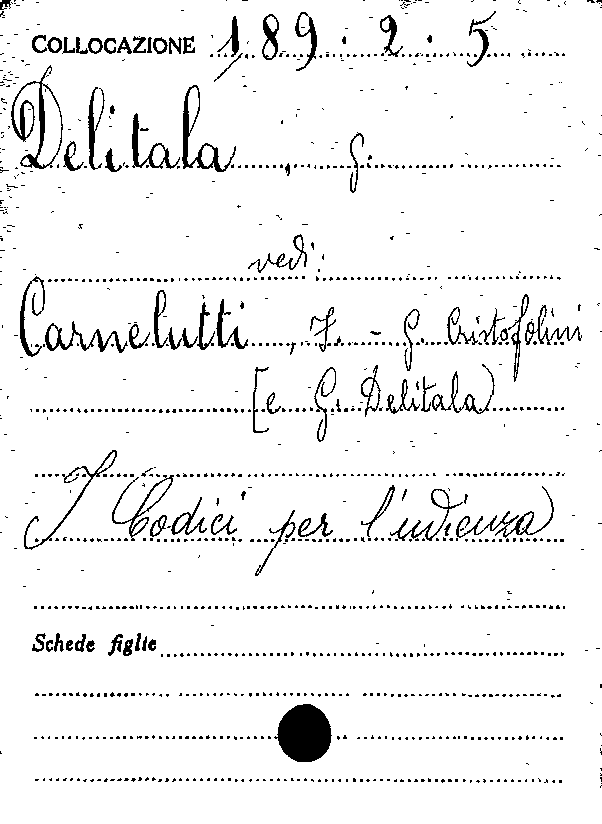 COLLOCAZIONE 189.2.5
Delitala, G.
vedi:
Carnelutti, F. - G. Cristofolini
[e G. Delitala)
I Codici per l'udienza
Schede figlie